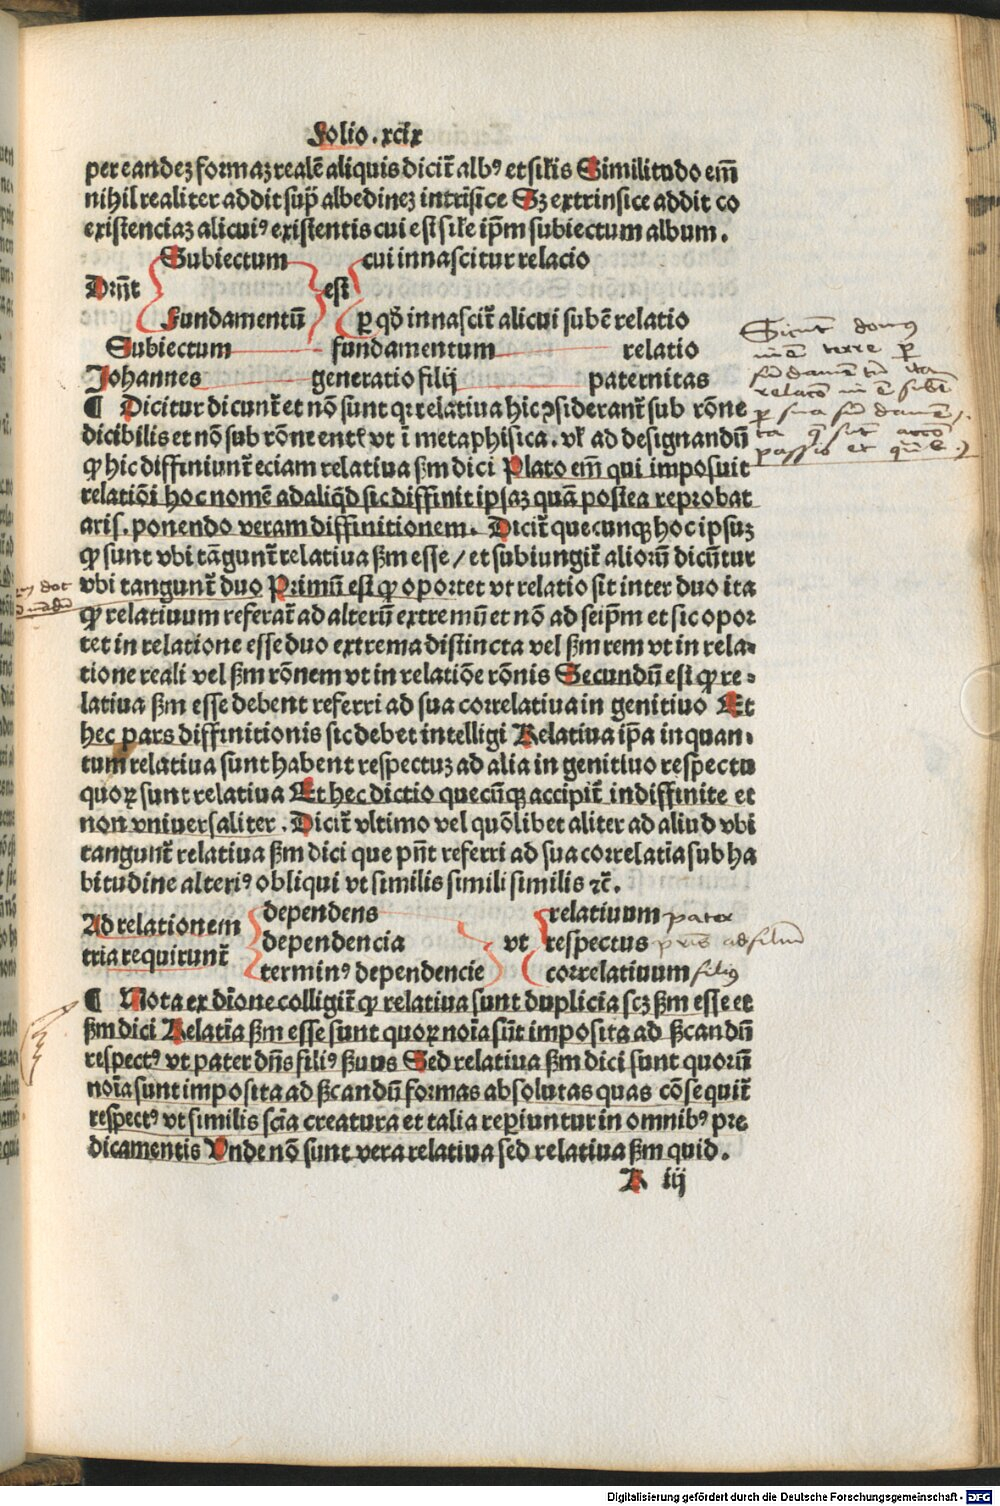 Folio. xcix
per eandeʒ formaʒ realē aliquis dicit᷑ albꝰ et sil̄is Similitudo em̄
nihil realiter addit sup̄ albedineʒ intrīsice Sʒ extrinsice addit co
existenciaʒ alicuiꝰ existentis cui est sil̄e ip̄m subiectum album.
Subiectum cui innascitur relacio
Dr̄nt est
Fundamentū ꝑ qd̄ innascit᷑ alicui subē relatio
Subiectum fundamentum relatio
Johannes generatio filij paternitas
¶ Dicitur dicunt᷑ et nō sunt qꝛ relatiua hic ꝯsiderant᷑ sub rōne
dicibilis et nō sub rōne entꝭ vt ī metaphisica. vl̄ ad designandū
ꝙ hic diffiniunt᷑ eciam relatiua ẜm dici Plato em̄ qui imposuit
relatiōi hoc nomē ad aliqͥd sic diffinit ipsaʒ quā postea reprobat
aris. ponendo veram diffinitionem. Dicit᷑ quecunqꝫ hoc ipsuʒ
ꝙ sunt vbi tāgunt᷑ relatiua ẜm esse / et subiungit᷑ aliorū dicūtur
vbi tangunt᷑ duo Primū est ꝙ oportet vt relatio sit inter duo ita
ꝙ relatiuum referat᷑ ad alterū extremū et nō ad seip̄m et sic opor
tet in relatione esse duo extrema distincta vel ẜm rem vt in rela-
tione reali vel ẜm rōnem vt in relatiōe rōnis Secundū est ꝙ re-
latiua ẜm esse debent referri ad sua correlatiua in genitiuo Et
hec pars diffinitionis sic debet intelligi Relatiua ip̄a in quan-
tum relatiua sunt habent respectuʒ ad alia in genitiuo respectu
quoꝝ sunt relatiua Et hec dictio quecūqꝫ accipit᷑ indiffinite et
non vniuersaliter. Dicit᷑ vltimo vel quōlibet aliter ad aliud vbi
tangunt᷑ relatiua ẜm dici que pn̄t referri ad sua correlatīa sub ha
bitudine alteriꝰ obliqui vt similis simili similis ⁊c̄.
Ad relationem tria requirunt᷑
dependens relatiuum pater
dependencia vt respectus pr̄is ad filiū
terminꝰ dependencie correlatiuum filiꝰ
¶ Nota ex dīone colligit᷑ ꝙ relatiua sunt duplicia scʒ ẜm esse et
ẜm dici Relatīa ẜm esse sunt quoꝝ noīa sūt imposita ad ẜcandū
respectꝰ vt pater dn̄s filiꝰ ẜuus Sed relatiua ẜm dici sunt quorū
noīa sunt imposita ad ẜcandū formas absolutas quas cōsequit᷑
respectꝰ vt similis scīa creatura et talia reꝑiuntur in omnibꝰ pre
dicamentis Unde nō sunt vera relatiua sed relatiua ẜm quid.
A iij
Digitalisierung gefördert durch die Deutsche Forschungsgemeinschaft - DFG